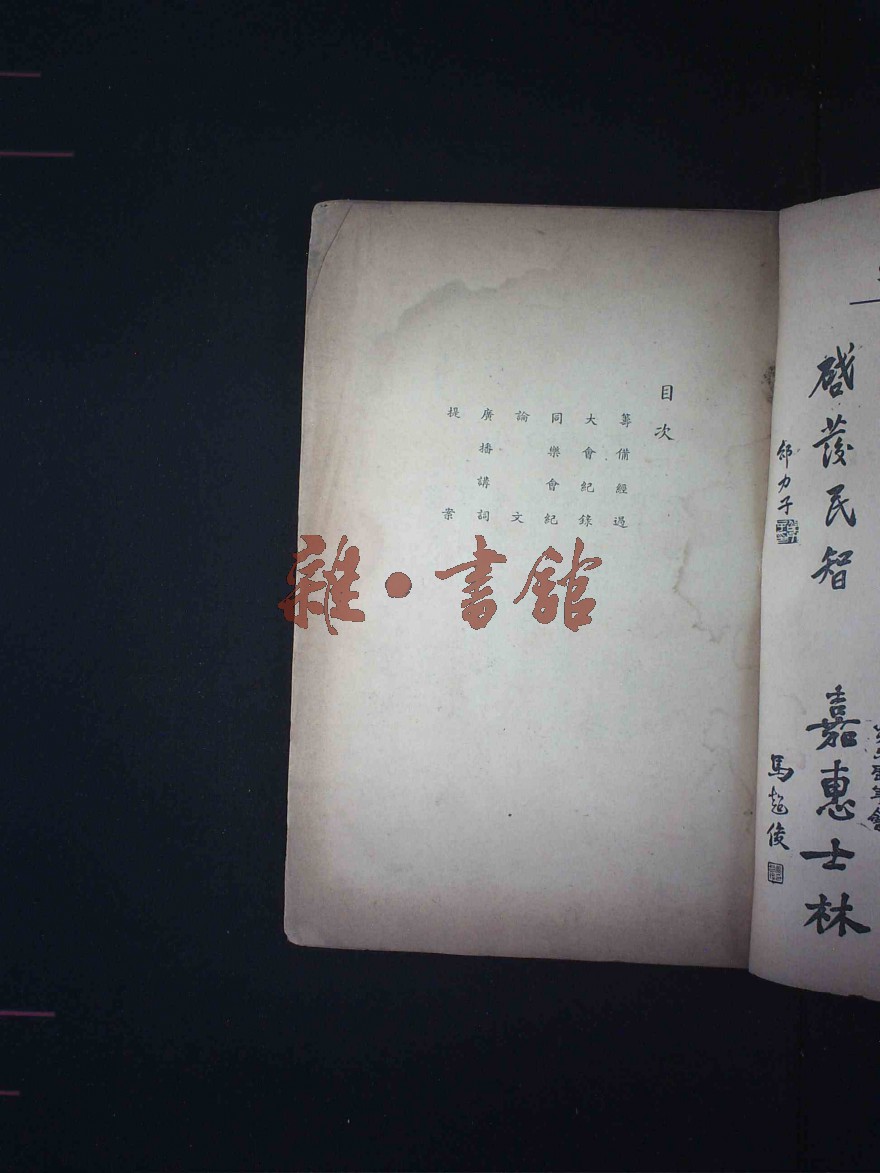 啓發民智
邵力子
嘉惠士林
馬超俊
目次
籌備經過
大會紀錄
同樂會紀
論文
廣播講詞
提案
雜·書館